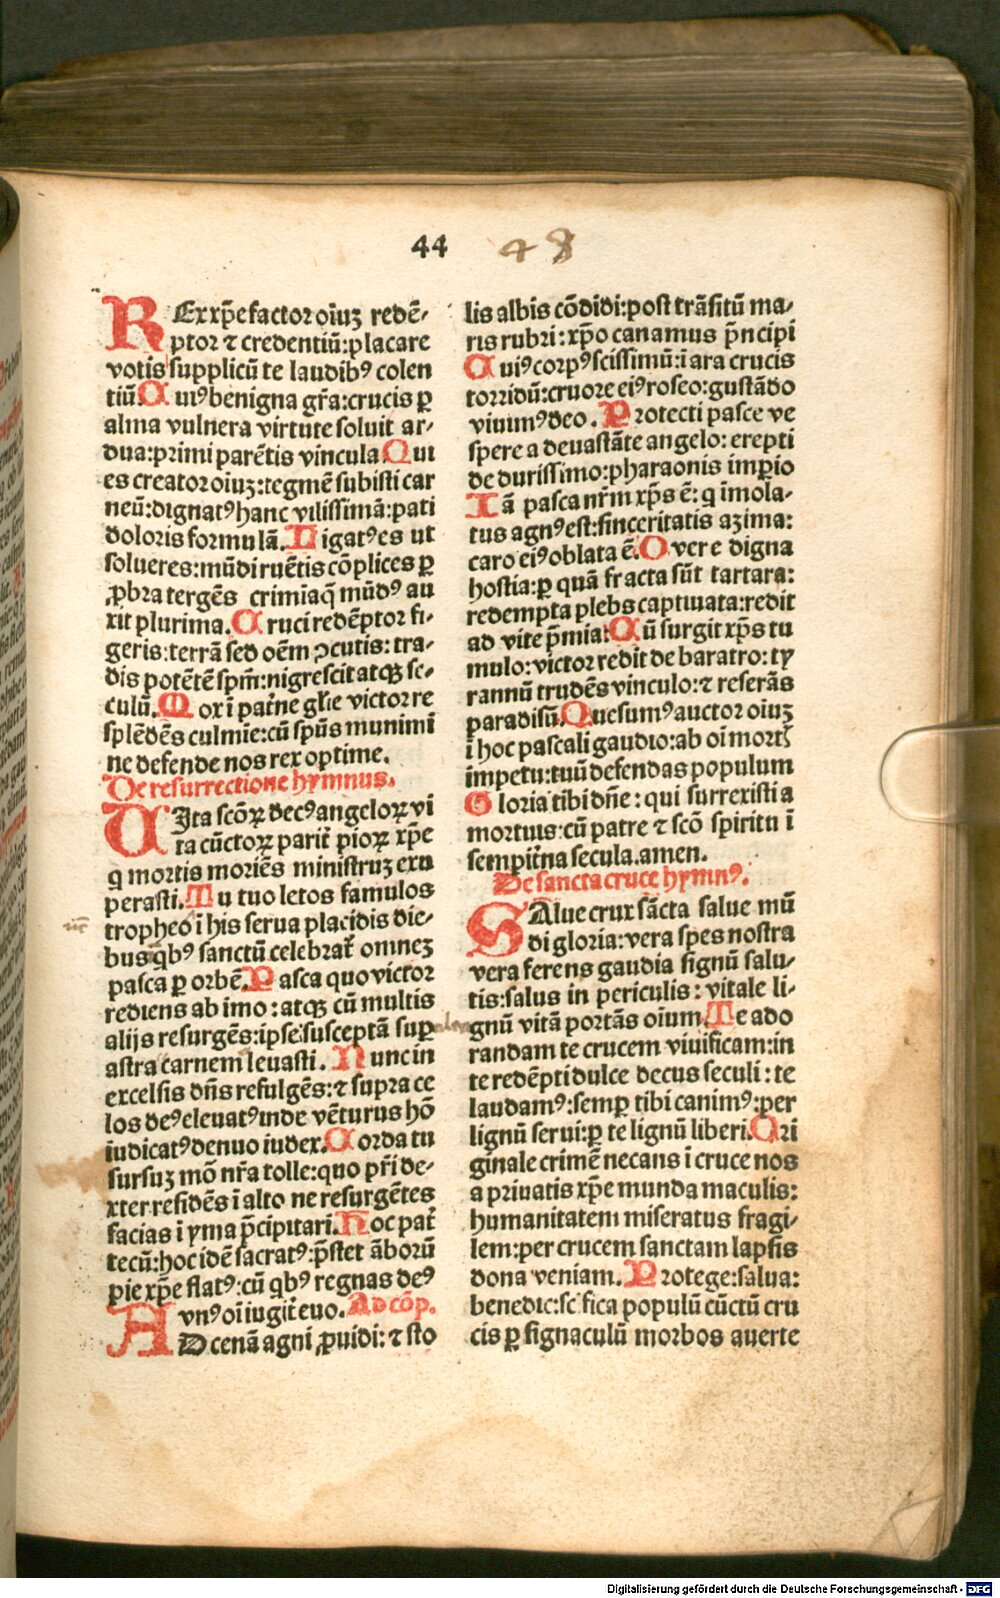 44 48
REx xp̄e factor oīuʒ redē-
ptor ⁊ credentiū: placare
votis supplicū te laudibꝰ colen
tiū. Cuiꝰ benigna gr̄a: crucis ꝑ
alma vulnera virtute soluit ar-
dua: primi parētis vincula Qui
es creator oīuʒ: tegmē subisti car
neū: dignatꝰ hanc vilissimā: pati
doloris formulā. Ligatꝰ es ut
solueres: mūdi ruētis cōplices ꝑ
ꝓbra tergēs crimīa q̄ mūdꝰ au
xit plurima. Cruci redēptor fi-
geris: terrā sed oēm ꝯcutis: tra-
dis potētē spm̄: nigrescit atqꝫ se-
culū. Mox ī pat̄ne gl̄ie victor re
splēdēs culmīe: cū spūs munimī
ne defende nos rex optime.
De resurrectione hymnus.
UIta scōꝝ decꝰ angeloꝝ vi
ta cūctoꝝ parit̄ pioꝝ xp̄e
q̄ mortis moriēs ministruʒ exu
perasti. Tu tuo letos famulos
tropheo ī his serua placidis die-
bus qͥbꝰ sanctū celebrat̄ omneʒ
pasca ꝑ orbē. Pasca quo victor
rediens ab imo: atqꝫ cū multis
alijs resurgēs: ipse susceptā suꝑ
astra carnem leuasti. Nunc in
excelsis dn̄s refulgēs: ⁊ supra ce
los deꝰ eleuatꝰ inde vēturus hō
iudicatꝰ denuo iudex. Corda tu
sursuʒ mō nr̄a tolle: quo pr̄i de-
xter residēs ī alto ne resurgētes
facias ī yma p̄cipitari. Hoc pat̄
tecū: hoc idē sacratꝰ: p̄stet āborū
pie xp̄e flatꝰ: cū qͥbꝰ regnas deꝰ
vnꝰ oī iugit euo. Ad cōp.
AD cenā agni ꝓuidi: ⁊ sto
lis albis cōdidi: post trāsitū ma-
ris rubri: xp̄o canamus p̄ncipi
Cuiꝰ corpꝰ scissimū: ī ara crucis
torridū: cruore eiꝰ roseo: gustādo
viuimꝰ deo. Protecti pasce ve
spere a deuastāte angelo: erepti
de durissimo: pharaonis imꝑio
Iā pasca nr̄m xp̄s ē: q̄ īmola-
tus agnꝰ est: sinceritatis azima:
caro eiꝰ oblata ē. O vere digna
hostia: ꝑ quā fracta sūt tartara:
redempta plebs captiuata: redit
ad vite p̄mia: Cū surgit xp̄s tu
mulo: victor redit de baratro: ty
rannū trudēs vinculo: ⁊ reserās
paradisū. Quesumꝰ auctor oīuʒ
ī hoc pascali gaudio: ab oī mortꝭ
impetu: tuū defendas populum
Gloria tibi dn̄e: qui surrexisti a
mortuis: cū patre ⁊ scō spiritu ī
sempit̄na secula. amen.
De sancta cruce hymnꝰ.
SAlue crux sācta salue mū
di gloria: vera spes nostra
vera ferens gaudia signū salu-
tis: salus in periculis: vitale li-
gnū vitā portās oīum. Te ado
randam te crucem viuificam: in
te redēpti dulce decus seculi: te
laudamꝰ: semꝑ tibi canimꝰ: per
lignū serui: ꝑ te lignū liberi. Ori
ginale crimē necans ī cruce nos
a priuatis xp̄e munda maculis:
humanitatem miseratus fragi-
lem: per crucem sanctam lapsis
dona veniam. Protege: salua:
benedic: sc̄ifica populū cūctū cru
cis ꝑ signaculū morbos auerte
Digitalisierung gefördert durch die Deutsche Forschungsgemeinschaft - DFG